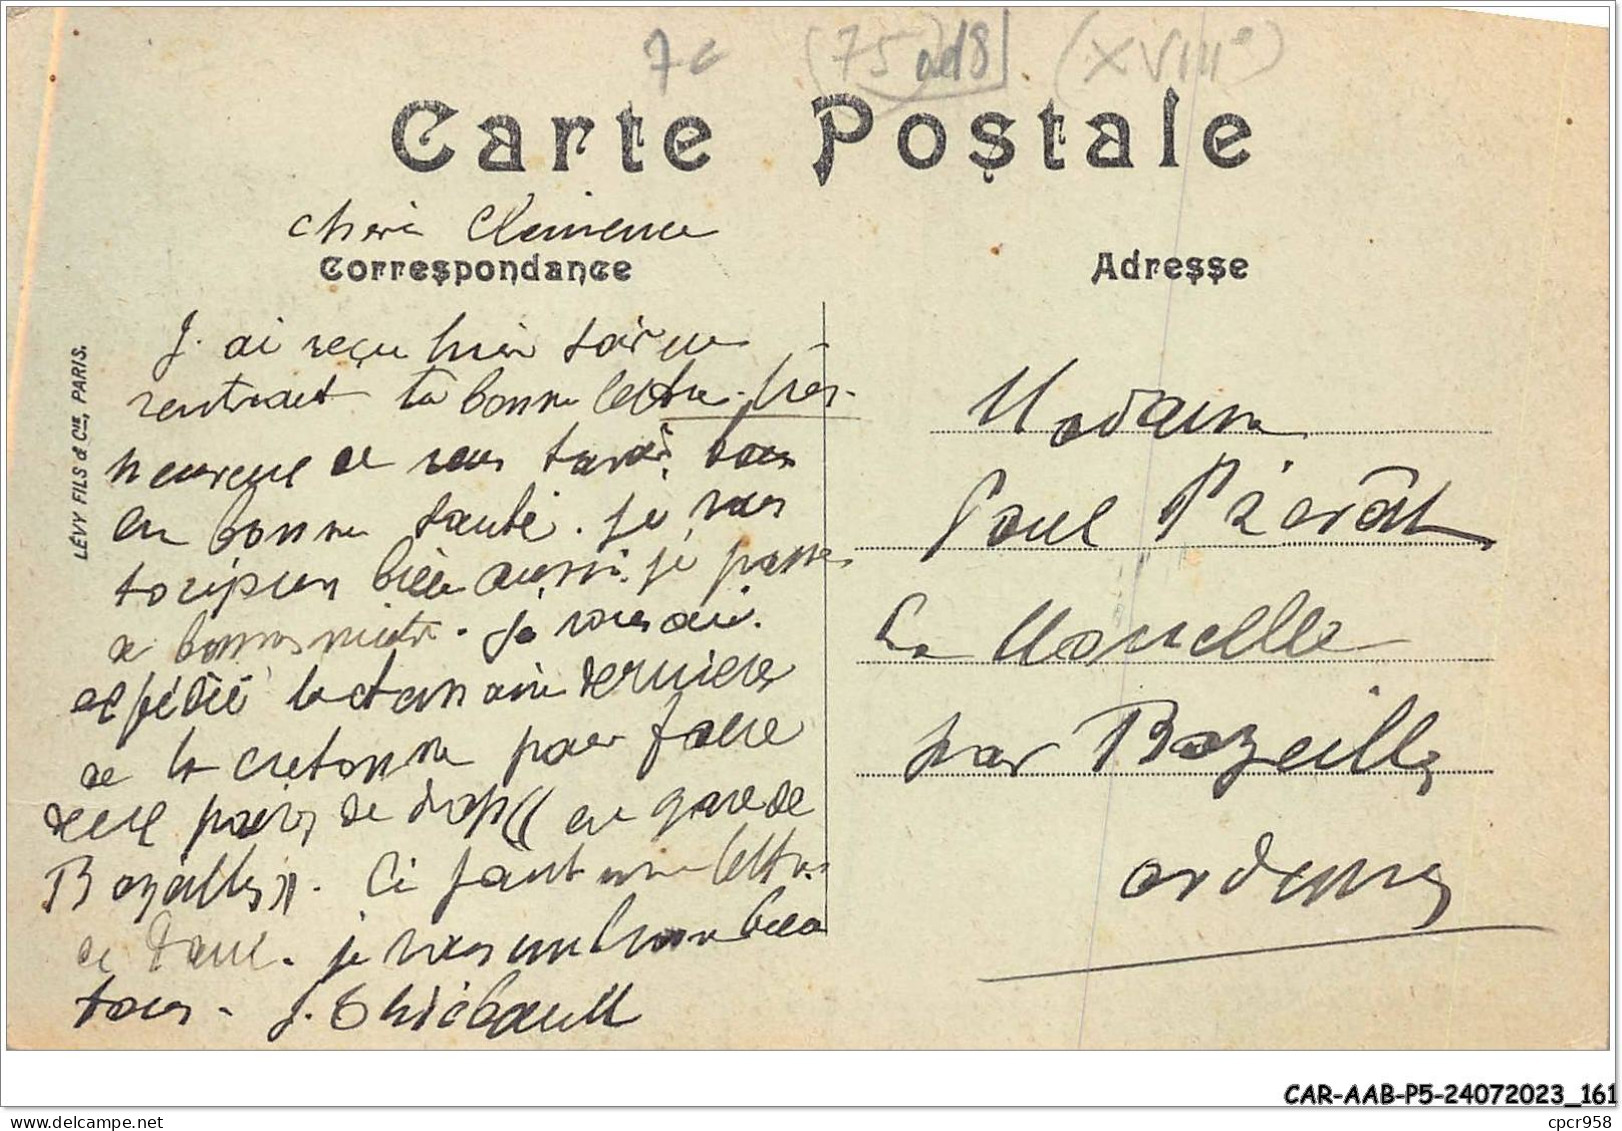 7c (75) ad8 (XVIIIe)
Carte Postale
cheri Clemence
Correspondance
Adresse
J. ai reçu hier soir en
rentrant ta bonne lettre. très-
heureuse de vous savoir tous
en bonne santé. je vais
bien aussi. je passe
de bonnes nuits. je vous ai
expédié la semaine dernière
de la cretonne pour faire
deux paires de draps (( en gare de
Bazeilles )). Ci joint une lettre
de . je vous embrasse bien
tous - J. Thiébault
LÉVY FILS & Cie, PARIS.
Madame
Paul Piérât
La Moncelle
par Bazeilles
ardennes
CAR-AAB-P5-24072023_161
cpcr958